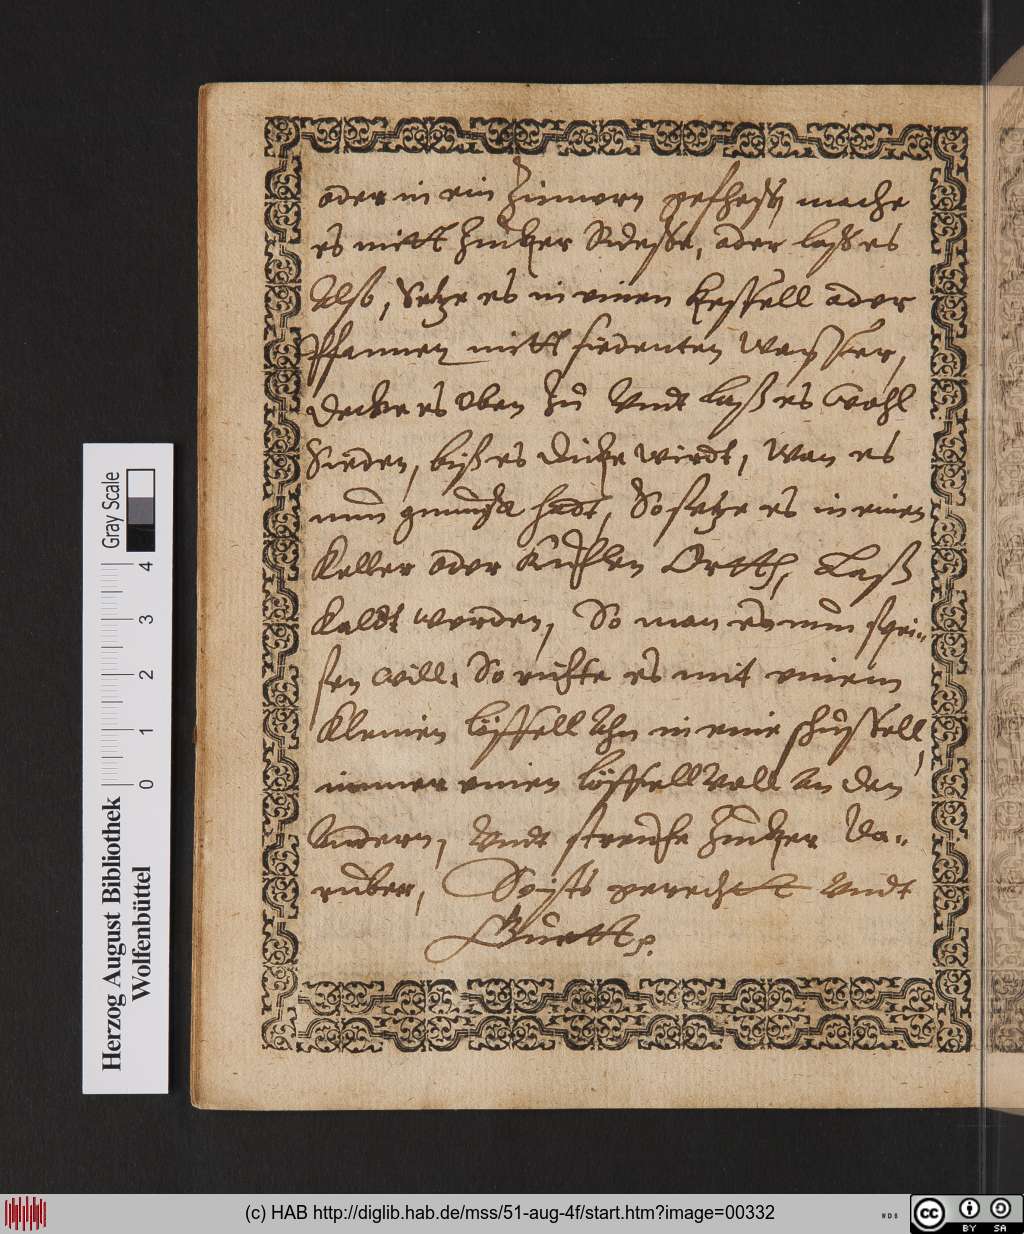 oder in ein Zinnern geschier, mache
es mitt Zucker Süesse, oder laß es
Also, Setze es in einen Keßell oder
Pfannen mitt siedenten Wasser,
decke es oben Zů Undt laß es wohl
Sieden, biß es dicke wirdt, Wan es
nun genung hadt, So setze es in einen
Keller oder Kühlen Ortth, Laß
Kaldt werden, So man es nun spei-
sen will, So richte es mit einem
Kleinen löffell Ahn in eine schüssell,
immer einen löffell Voll An den
Andern, Undt streuhe Zucker Da-
rüber, So ists gerecht Undt
Guett
Herzog August Bibliothek
Wolfenbüttel
0 1 2 3 4
Gray Scale
(c) HAB http://diglib.hab.de/mss/51-aug-4f/start.htm?image=00332
WDB
cc BY SA